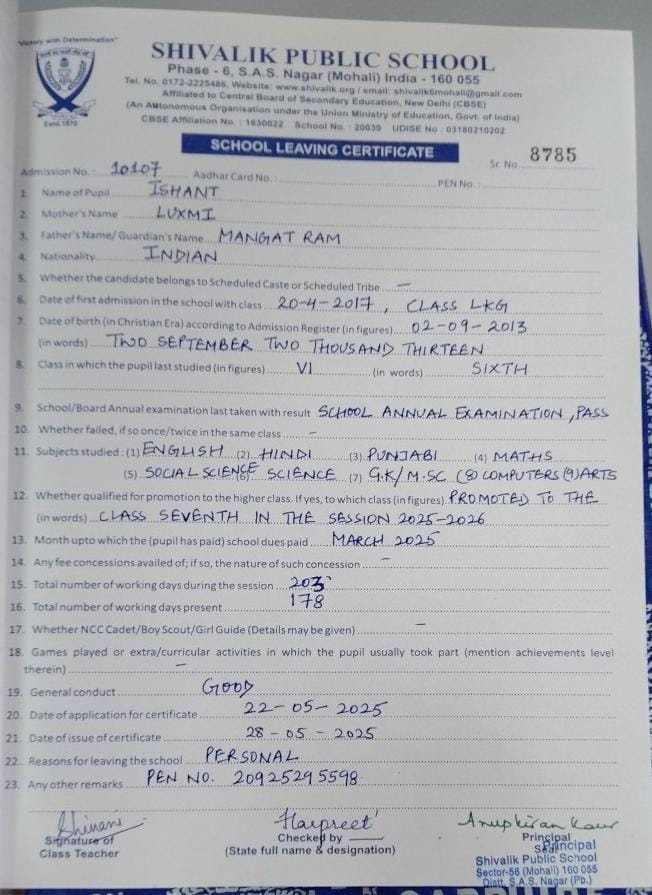 "Victory with Determination"
Estd. 1970
SHIVALIK PUBLIC SCHOOL
Phase - 6, S.A.S. Nagar (Mohali) India - 160 055
Tel. No. 0172-2225486, Website: www.shivalik.org / email: shivalik6mohali@gmail.com
Affiliated to Central Board of Secondary Education, New Delhi (CBSE)
(An Autonomous Organisation under the Union Ministry of Education, Govt. of India)
CBSE Affiliation No. : 1630022 School No. : 20039 UDISE No : 03180210202
SCHOOL LEAVING CERTIFICATE
Sr. No. 8785
Admission No. : 10107 Aadhar Card No. : PEN No. :
1. Name of Pupil ISHANT
2. Mother's Name LUXMI
3. Father's Name/ Guardian's Name MANGAT RAM
4. Nationality INDIAN
5. Whether the candidate belongs to Scheduled Caste or Scheduled Tribe —
6. Date of first admission in the school with class 20-4-2017, CLASS LKG
7. Date of birth (in Christian Era) according to Admission Register (in figures) 02-09-2013
(in words) TWO SEPTEMBER TWO THOUSAND THIRTEEN
8. Class in which the pupil last studied (in figures) VI (in words) SIXTH
9. School/Board Annual examination last taken with result SCHOOL ANNUAL EXAMINATION, PASS
10. Whether failed, if so once/twice in the same class —
11. Subjects studied : (1) ENGLISH (2) HINDI (3) PUNJABI (4) MATHS
(5) SOCIAL SCIENCE (6) SCIENCE (7) G.K/M.SC (8) COMPUTERS (9) ARTS
12. Whether qualified for promotion to the higher class. If yes, to which class (in figures) PROMOTED TO THE
(in words) CLASS SEVENTH IN THE SESSION 2025-2026
13. Month upto which the (pupil has paid) school dues paid MARCH 2025
14. Any fee concessions availed of; if so, the nature of such concession —
15. Total number of working days during the session 203
16. Total number of working days present 178
17. Whether NCC Cadet/Boy Scout/Girl Guide (Details may be given) —
18. Games played or extra/curricular activities in which the pupil usually took part (mention achievements level
therein) —
19. General conduct GOOD
20. Date of application for certificate 22-05-2025
21. Date of issue of certificate 28-05-2025
22. Reasons for leaving the school PERSONAL
23. Any other remarks PEN NO. 20925295598
Shivani Harpreet Anupkiran Kaur
Signature of Class Teacher
Checked by
(State full name & designation)
Principal
Seal
Principal
Shivalik Public School
Sector-56 (Mohali) 160 055
Distt. S.A.S. Nagar (Pb.)